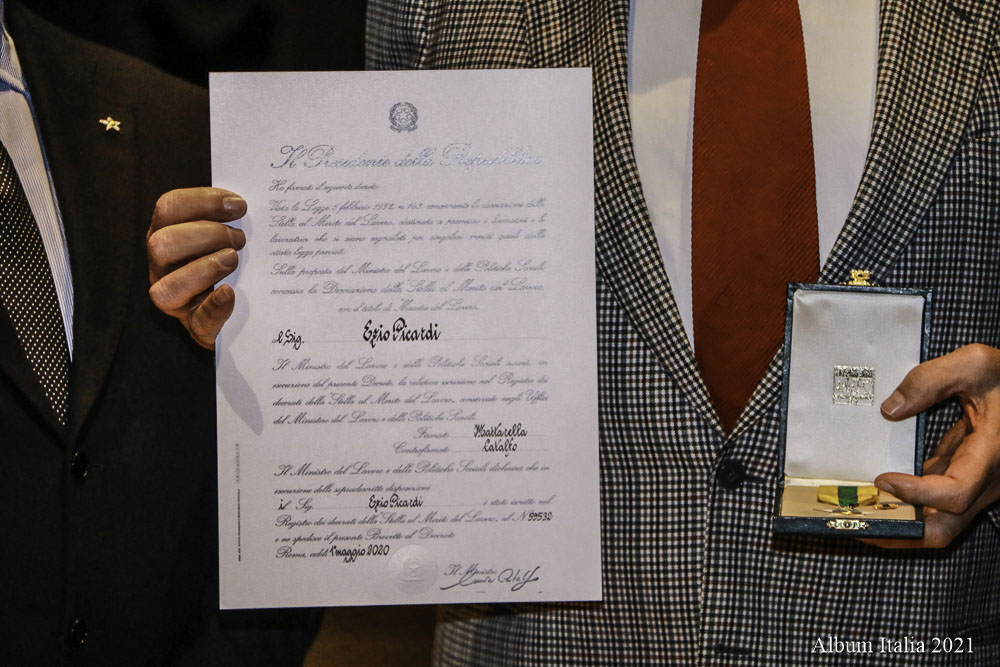 Il Presidente della Repubblica
Ha firmato il seguente decreto:
Vista la Legge 5 febbraio 1992, n. 143, concernente la concessione della
Stella al Merito del Lavoro, destinata a premiare i lavoratori e le
lavoratrici che si siano segnalati per singolari meriti quali dalla
citata legge previsti;
Sulla proposta del Ministro del Lavoro e delle Politiche Sociali,
concessa la Decorazione della Stella al Merito del Lavoro,
con il titolo di Maestro del Lavoro,
al Sig. Ezio Picardi
Il Ministro del Lavoro e delle Politiche Sociali curerà, in
esecuzione del presente Decreto, la relativa iscrizione nel Registro dei
decorati della Stella al Merito del Lavoro, conservato negli Uffici
del Ministero del Lavoro e delle Politiche Sociali.
Firmato Mattarella
Controfirmato Catalfo
Il Ministro del Lavoro e delle Politiche Sociali dichiara che in
esecuzione delle sopradescritte disposizioni
il Sig. Ezio Picardi è stato iscritto nel
Registro dei decorati della Stella al Merito del Lavoro, al N. 59532
e ne spedisce il presente Brevetto al Decorato
Roma, addì 1 maggio 2020
Il Ministro
Album Italia 2021